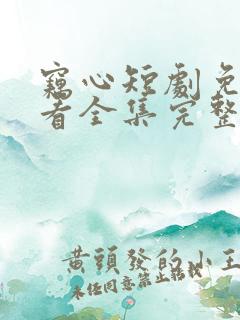 竊心短劇免
看全集完整
黃頭發的小王
未经同意禁止转载